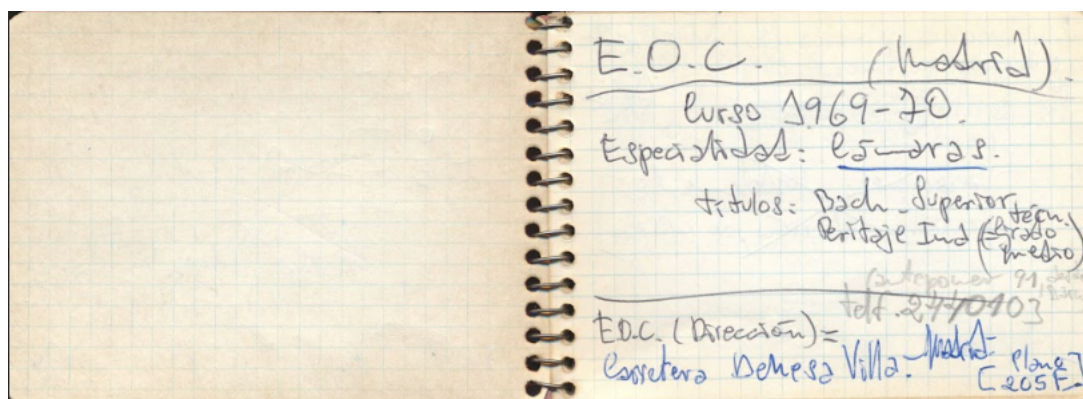 E.O.C. (Madrid).
Curso 1969-70.
Especialidad: Cámaras.
títulos: Bach. Superior
Peritaje Ind (técn. Grado medio)
91,
telf. 2440103
E.O.C. (Dirección) =
Carretera Dehesa Villa - Madrid
[Plano 205F.]